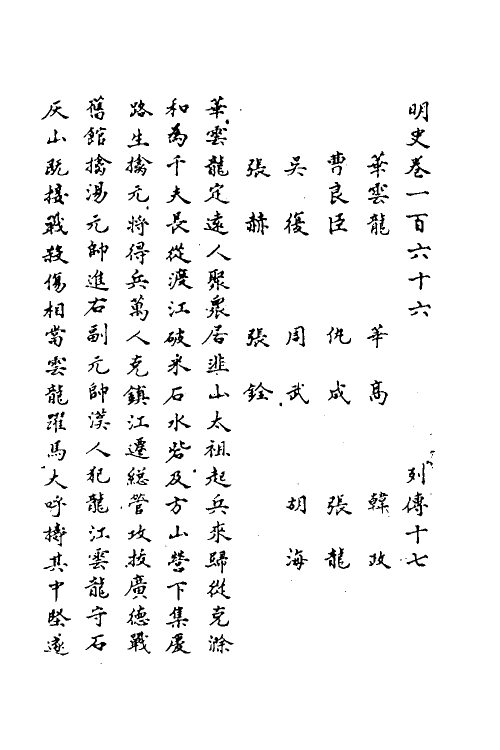 明史卷一百六十六　列傳十七
華雲龍　華高　韓政
曹良臣　仇成　張龍
吳復　周武　胡海
張赫　張銓
華雲龍定遠人聚衆居韭山太祖起兵來歸從克滁
和為千夫長從渡江破采石水砦及方山營下集慶
路生擒元將得兵萬人克鎮江遷總管攻拔廣德戰
舊館擒湯元帥進右副元帥漢人犯龍江雲龍守石
灰山既接戰殺傷相當雲龍躍馬大呼擣其中堅遂